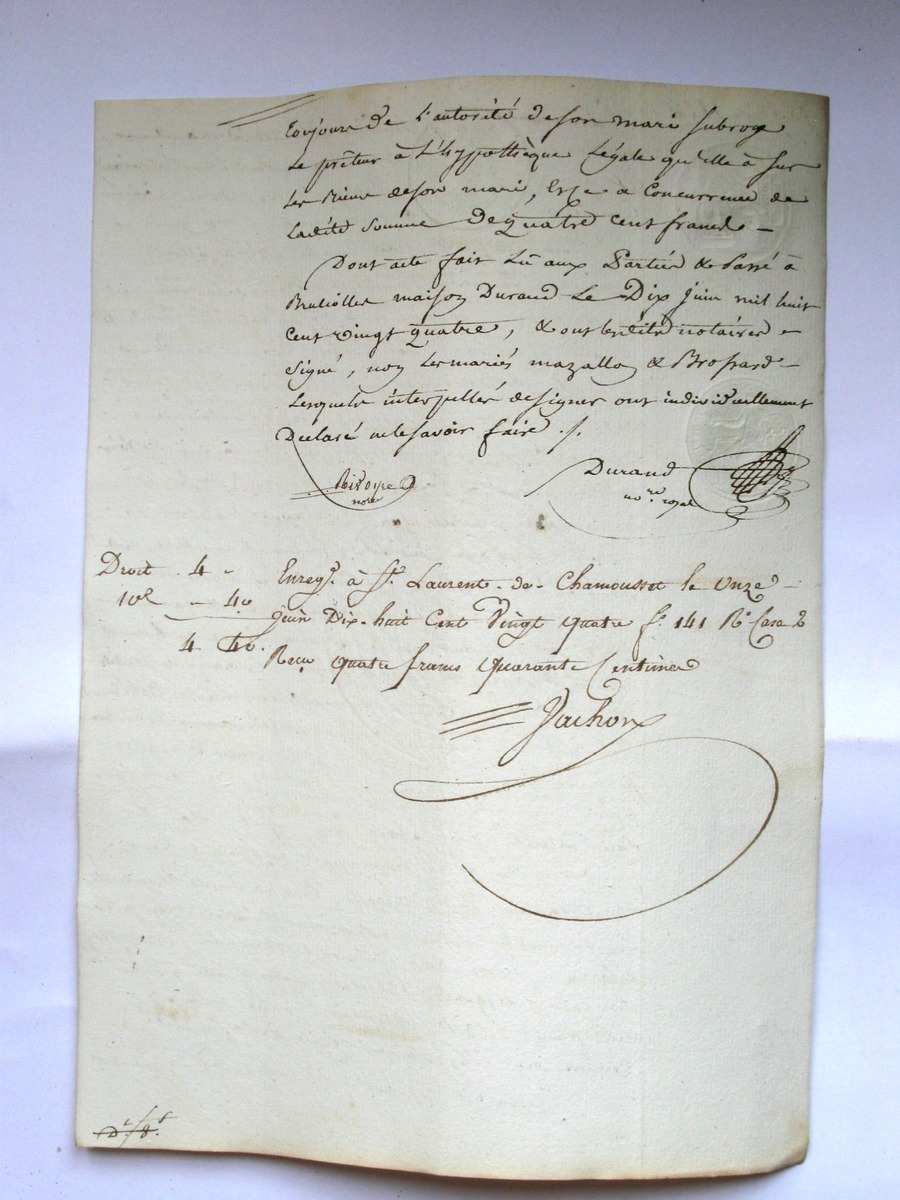 toujours de l'autorité de son mari subroge
le prêteur à l'hypothèque légale qu'elle à sur
les biens de son mari, & ce a concurrence de
ladite somme de quatre cent francs —
Dont acte fait lû aux Parties & Passé à
Brullioles maison Durand le Dix juin mil huit
cent vingt quatre, & ont lesdits notaires
signé, non les mariés mazallon & Brossard
lesquels interpellés de signer ont individuellement
Déclaré ne le savoir faire ./.
notre
Durand
no.re royal
Droit 4 "
10e " 40
4 40.
Enregt. à St. Laurent-de-Chamousset le onze
juin Dix-huit Cent Vingt quatre fo. 141 Ro Case 2
Reçu quatre francs quarante Centimes
Vachon